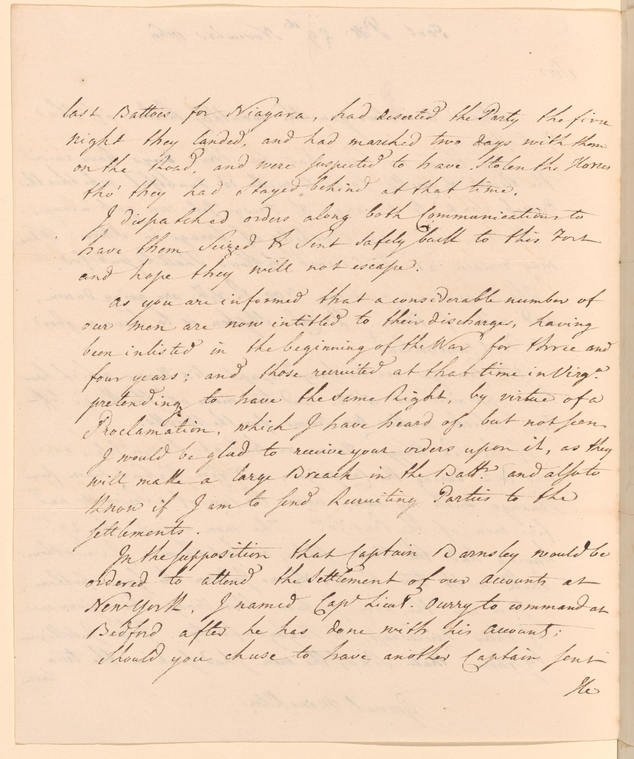 last Battoes for Niagara, had deserted the Party the five
night they landed, and had marched two days with them
on the Road, and were suspected to have Stolen the Horses
tho' they had Stayed behind at that time.
I dispatched orders along both Communications to
have them Seized & Sent Safely back to this Fort
and hope they will not escape.
As you are informed that a considerable number of
our men are now intitled to their discharges, having
been inlisted in the beginning of the War for three and
four years; and those recruited at that time in Virga.
pretending to have the Same Right, by virtue of a
Proclamation, which I have heard of, but not seen
I would be glad to receive your orders upon it, as they
will make a large Breach in the Batt. and also to
Know if I am to send Recruiting Parties to the
settlements.
In the supposition that Captain Barnsley would be
ordered to attend the Settlement of our Accounts at
New York, I named Capt Lieut. Ourry to command at
Bedford after he has done with his Account;
Should you chuse to have another Captain sent
He